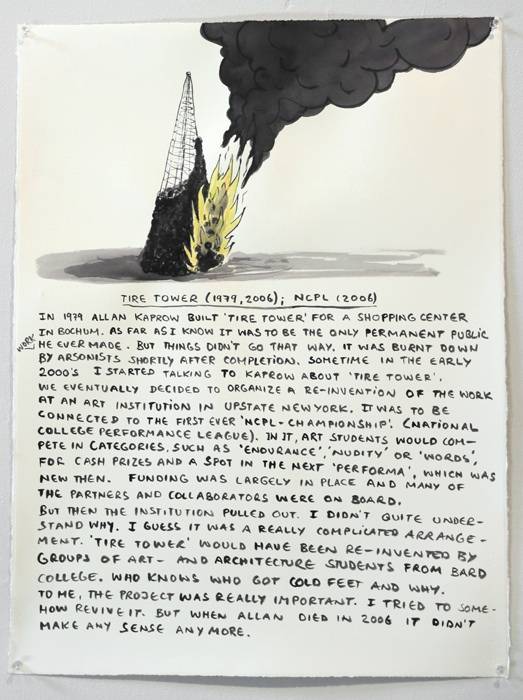 TIRE TOWER (1979, 2006); NCPL (2006)
IN 1979 ALLAN KAPROW BUILT 'TIRE TOWER' FOR A SHOPPING CENTER
IN BOCHUM. AS FAR AS I KNOW IT WAS TO BE THE ONLY PERMANENT PUBLIC
WORK
HE EVER MADE. BUT THINGS DIDN'T GO THAT WAY. IT WAS BURNT DOWN
BY ARSONISTS SHORTLY AFTER COMPLETION. SOMETIME IN THE EARLY
2000'S I STARTED TALKING TO KAPROW ABOUT 'TIRE TOWER'.
WE EVENTUALLY DECIDED TO ORGANIZE A RE-INVENTION OF THE WORK
AT AN ART INSTITUTION IN UPSTATE NEW YORK. IT WAS TO BE
CONNECTED TO THE FIRST EVER 'NCPL-CHAMPIONSHIP'. (NATIONAL
COLLEGE PERFORMANCE LEAGUE). IN IT, ART STUDENTS WOULD COM-
PETE IN CATEGORIES, SUCH AS 'ENDURANCE', 'NUDITY' OR 'WORDS',
FOR CASH PRIZES AND A SPOT IN THE NEXT 'PERFORMA', WHICH WAS
NEW THEN. FUNDING WAS LARGELY IN PLACE AND MANY OF
THE PARTNERS AND COLLABORATORS WERE ON BOARD.
BUT THEN THE INSTITUTION PULLED OUT. I DIDN'T QUITE UNDER-
STAND WHY. I GUESS IT WAS A REALLY COMPLICATED ARRANGE-
MENT. 'TIRE TOWER' WOULD HAVE BEEN RE-INVENTED BY
GROUPS OF ART- AND ARCHITECTURE STUDENTS FROM BARD
COLLEGE. WHO KNOWS WHO GOT COLD FEET AND WHY.
TO ME, THE PROJECT WAS REALLY IMPORTANT. I TRIED TO SOME-
HOW REVIVE IT. BUT WHEN ALLAN DIED IN 2006 IT DIDN'T
MAKE ANY SENSE ANYMORE.